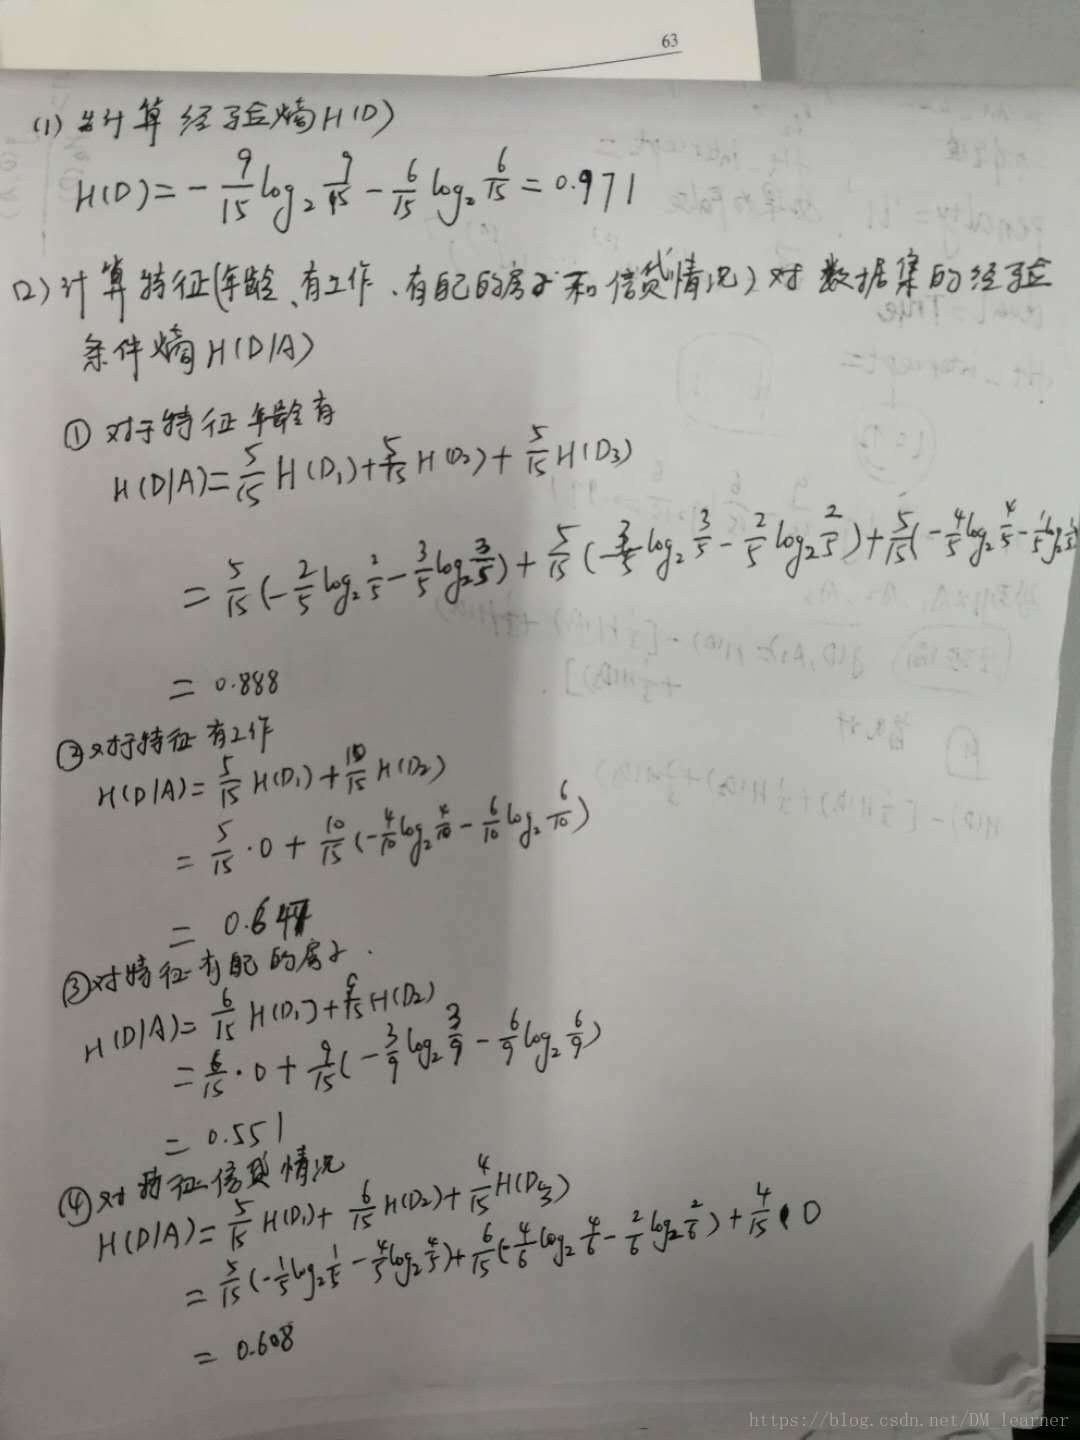 63
(1) 计算经验熵H(D)
H(D) = - 9/15 log₂ 9/15 - 6/15 log₂ 6/15 = 0.971
(2) 计算特征(年龄、有工作、有自己的房子和信贷情况)对数据集的经验
条件熵H(D|A)
① 对于特征年龄有
H(D|A) = 5/15 H(D₁) + 5/15 H(D₂) + 5/15 H(D₃)
= 5/15 (- 2/5 log₂ 2/5 - 3/5 log₂ 3/5) + 5/15 (- 3/5 log₂ 3/5 - 2/5 log₂ 2/5) + 5/15 (- 4/5 log₂ 4/5 - 1/5 log₂ 1/5)
= 0.888
② 对于特征有工作
H(D|A) = 5/15 H(D₁) + 10/15 H(D₂)
= 5/15 · 0 + 10/15 (- 4/10 log₂ 4/10 - 6/10 log₂ 6/10)
= 0.647
③ 对特征有自己的房子.
H(D|A) = 6/15 H(D₁) + 9/15 H(D₂)
= 6/15 · 0 + 9/15 (- 3/9 log₂ 3/9 - 6/9 log₂ 6/9)
= 0.551
④ 对特征信贷情况
H(D|A) = 5/15 H(D₁) + 6/15 H(D₂) + 4/15 H(D₃)
= 5/15 (- 1/5 log₂ 1/5 - 4/5 log₂ 4/5) + 6/15 (- 4/6 log₂ 4/6 - 2/6 log₂ 2/6) + 4/15 · 0
= 0.608
https://blog.csdn.net/DM_learner